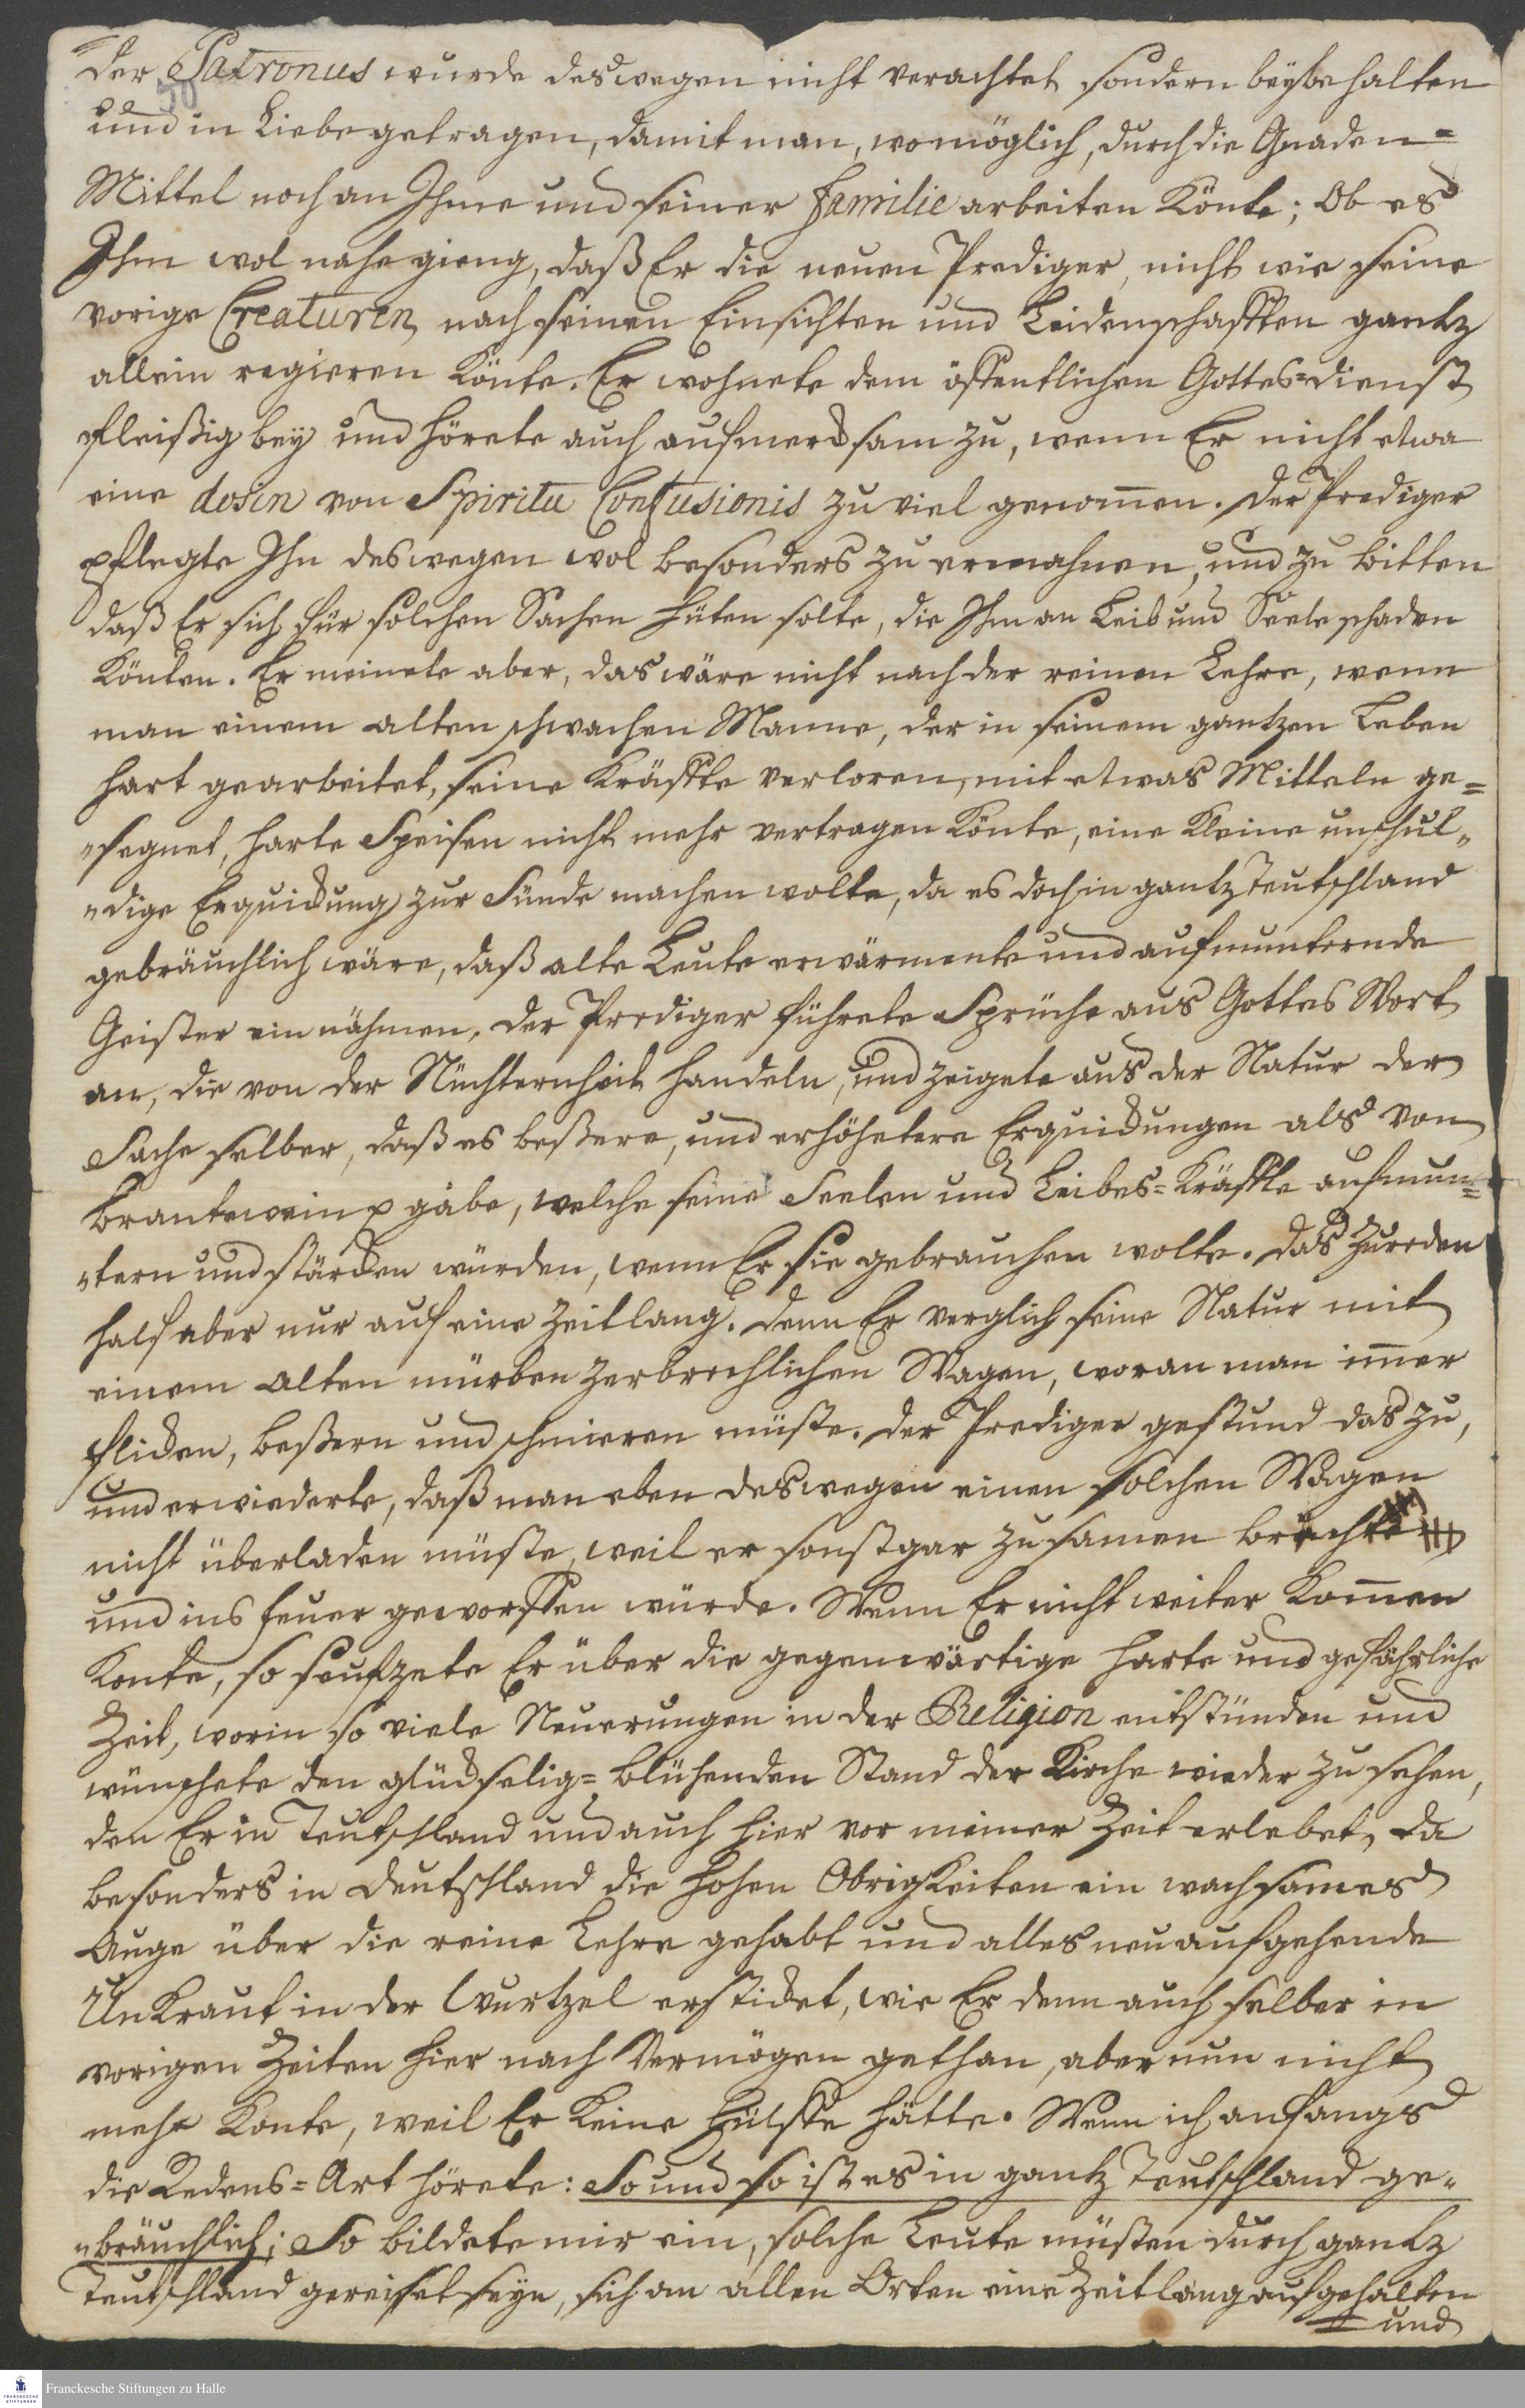 der Patronus wurde deswegen nicht verachtet sondern beybehalten
50
und in Liebe getragen, damit man, womöglich, durch die Gnaden=
Mittel noch an Ihme und seiner Familie arbeiten Könte; Ob es
Ihm wol nahe gieng, daß Er die neuen Prediger, nicht wie seine
vorige Creaturen, nach seinen Einsichten und Leidenschafften gantz
allein regieren Könte. Er wohnete dem öffentlichen Gottes=dienst
fleißig bey und hörete auch aufmercksam zu, wenn Er nicht etwa
eine dosin von Spiritu Confusionis zu viel genom̅en. Der Prediger
pflegte Ihn deswegen wol besonders zu ermahnen, und zu bitten
daß Er sich für solchen Sachen hüten solte, die Ihm an Leib und Seele schaden
Könten. Er meinete aber, das wäre nicht nach der reinen Lehre, wenn
man einem alten schwachen Manne, der in seinem gantzen Leben
hart gearbeitet, seine Kräffte verloren, mit etwas Mitteln ge=
"segnet, harte Speisen nicht mehr vertragen Könte, eine Kleine unschul"
"dige Erquickung zur Sünde machen wolte, da es doch in gantz Teutschland
gebräuchlich wäre, daß alte Leute erwärmente und aufmunternde
Geister ein nähmen. Der Prediger führete Sprüche aus Gottes Wort
an, die von der Nüchternheit handeln, und zeigete aus der Natur der
Sache selber, daß es beßere, und erhöhetere Erquickungen als von
Brantewein p gäbe, welche seine Seelen und Leibes=Kräffte aufmun=
"tern und stärcken würden, wenn Er sie gebrauchen wolte. Das Zureden
half aber nur auf eine Zeitlang. Denn Er verglich seine Natur mit
einem alten mürben zerbrechlichen Wagen, woran man im̅er
flicken, beßern und schmieren müste. Der Prediger gestund das zu,
und erwiederte, daß man eben deswegen einen solchen Wagen
nicht überladen müste, weil er sonst gar zusamen bräche
und ins Feuer geworffen würde. Wenn Er nicht weiter Kom̅en
Konte, so seufzete Er über die gegenwärtige harte und gefährliche
Zeit, worin so viele Neuerungen in der Religion entstünden und
wünschete den glückselig=blühenden Stand der Kirche wieder zu sehen,
den Er in Teutschland und auch hier vor meiner Zeit erlebet, da
besonders in Deutschland die hohen Obrigkeiten ein wachsames
Auge über die reine Lehre gehabt und alles neuaufgehende
UnKraut in der Wurtzel ersticket, wie Er denn auch selber in
vorigen Zeiten hier nach Vermögen gethan, aber nun nicht
mehr Konte, weil Er Keine Hülffe hätte. Wenn ich anfangs
die Redens=Art hörete: So und so ist es in gantz Teutschland ge"
"bräuchlich; So bildete mir ein, solche Leute müsten durch gantz
Teutschland gereiset seyn, sich an allen Orten eine Zeitlang aufgehalten
und
Franckesche Stiftungen zu Halle